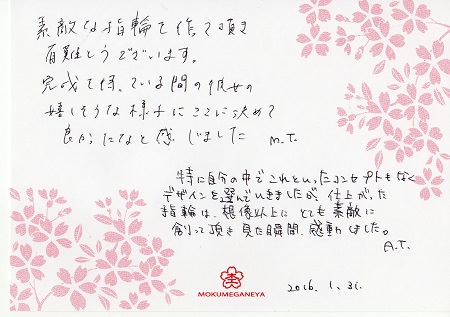 素敵な指輪を作って頂き
有難とうございます。
完成を待っている間の彼女の
嬉しそうな様子にここに決めて
良かったなと感じました M.T.
特に自分の中でこれといったコンセプトもなく
デザインを選んでいきましたが、仕上がった
指輪は、想像以上に とても素敵に
創って頂き見た瞬間、感動しました。
A.T.
MOKUMEGANEYA
2016. 1. 31.